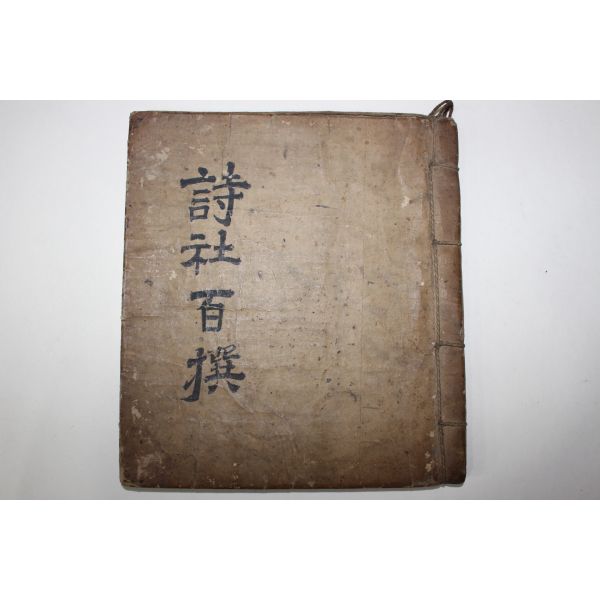 詩社百撰